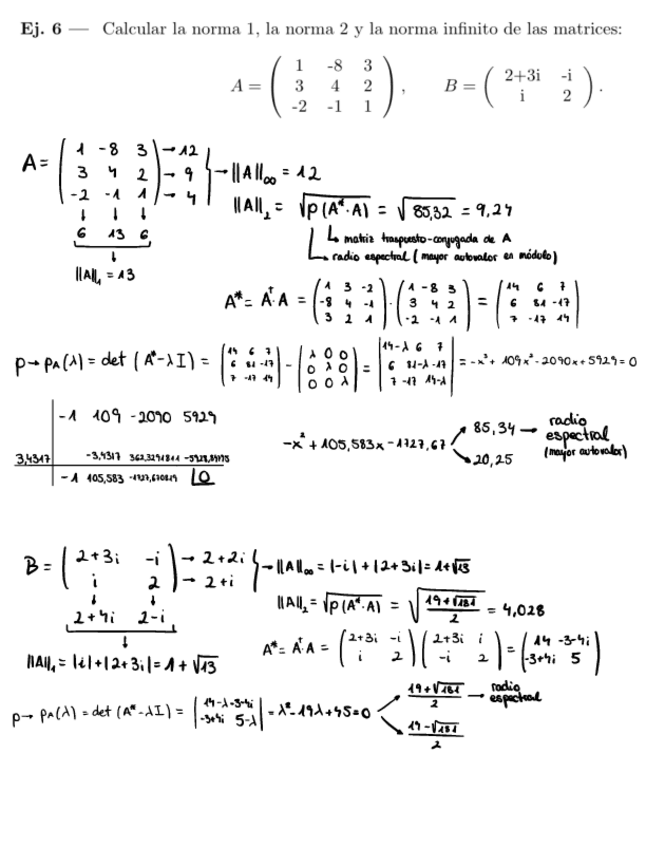 Ej. 6 — Calcular la norma 1, la norma 2 y la norma infinito de las matrices:
A = ( 1 -8 3 ; 3 4 2 ; -2 -1 1 ), B = ( 2+3i -i ; i 2 ).
A = ( 1 -8 3 ; 3 4 2 ; -2 -1 1 ) → 12 → 9 → 4 → ||A||∞ = 12
↓ ↓ ↓
6 13 6
↓
||A||₁ = 13
||A||₂ = √(ρ(A*·A)) = √85,32 = 9,24
↳ matriz traspuesto-conjugada de A
↳ radio espectral (mayor autovalor en módulo)
A* = Aᵗ·A = ( 1 3 -2 ; -8 4 -1 ; 3 2 1 ) · ( 1 -8 3 ; 3 4 2 ; -2 -1 1 ) = ( 14 6 7 ; 6 81 -17 ; 7 -17 14 )
p → p_A(λ) = det (A* - λI) = ( 14 6 7 ; 6 81 -17 ; 7 -17 14 ) - ( λ 0 0 ; 0 λ 0 ; 0 0 λ ) = | 14-λ 6 7 ; 6 81-λ -17 ; 7 -17 14-λ | = -x³ + 109x² - 2090x + 5929 = 0
-1 109 -2090 5929
3,4317 -3,4317
-1 105,583 0
-x² + 105,583x - 1727,67
85,34 → radio espectral (mayor autovalor)
20,25
B = ( 2+3i -i ; i 2 ) → 2+2i → 2+i → ||A||∞ = |-i| + |2+3i| = 1+√13
↓ ↓
2+4i 2-i
↓
||A||₁ = |i| + |2+3i| = 1 + √13
||A||₂ = √(ρ(A*·A)) = √((19+√181)/2) = 4,028
A* = Aᵗ·A = ( 2+3i -i ; i 2 ) ( 2+3i i ; -i 2 ) = ( 14 -3-4i ; -3+4i 5 )
p → p_A(λ) = det (A* - λI) = | 14-λ -3-4i ; -3+4i 5-λ | = λ² - 19λ + 45 = 0
(19+√181)/2 → radio espectral
(19-√181)/2